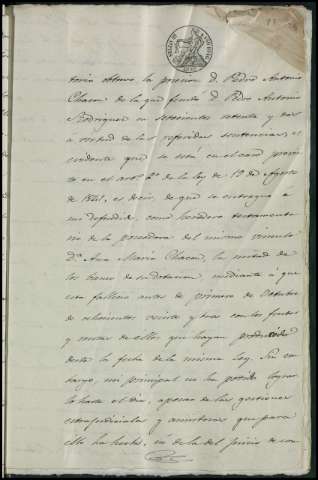 toria obtuvo la procion D. Pedro Antonio
Chacon de la que fundó D. Pedro Antonio
Rodriguez en setecientos setenta y dos
á virtud de las referidas sentencias, es
evidente que se está en el caso previs
to en el artº 2º de la ley de 19 de Agosto
de 1841, es decir, de que se entregue a
mi defendido, como heredero testamenta
rio de la poseedora del mismo vinculo
Dª Ana Maria Chacon, la mitad de
los bienes de su dotacion, mediante á que
esta falleció antes de primero de Octubre
de ochocientos veinte y tres con los frutos
y rentas de ellos que hayan producido
desde la fecha de la misma ley. Sin em
bargo, mi principal no ha podido lograr
lo hasta el dia, apesar de las gestiones
estrajudiciales y amistosas que para
ello ha hecho, ni de la del juicio de con